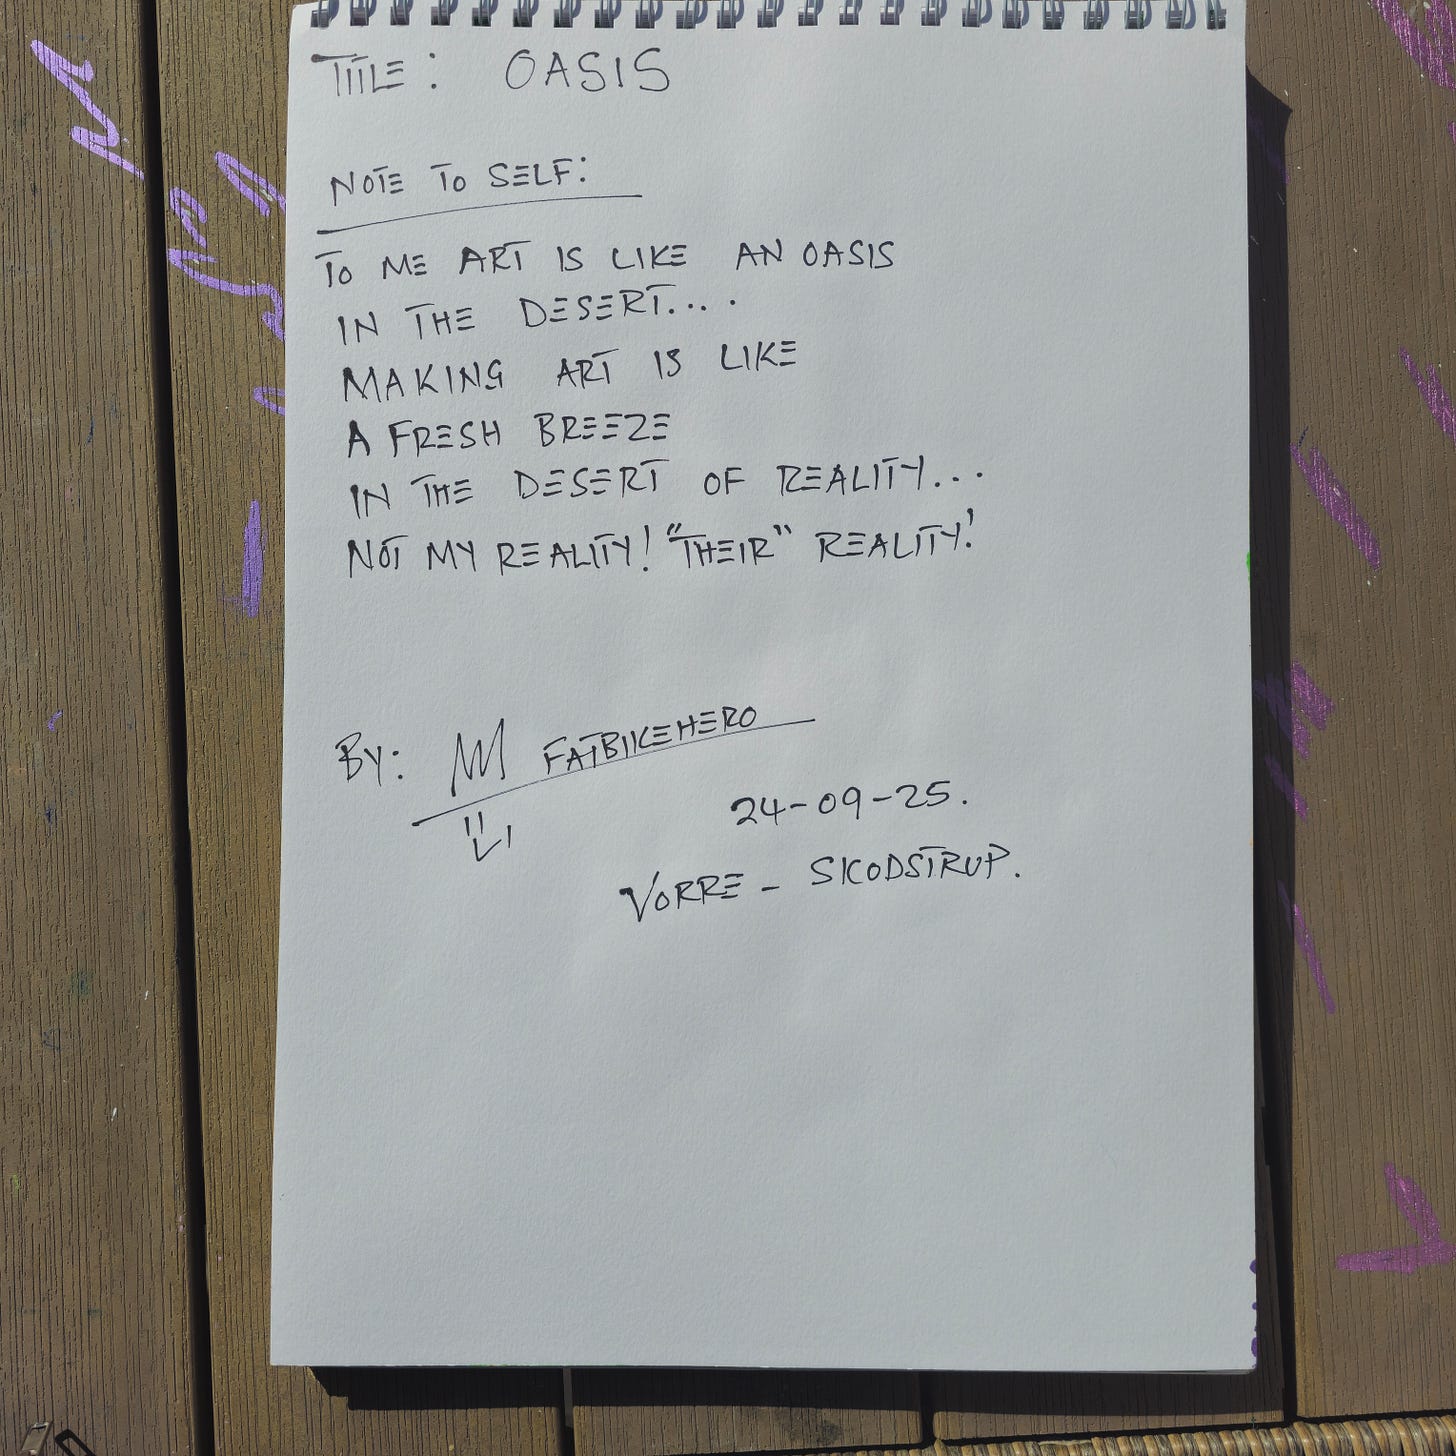 TITLE: OASIS
NOTE TO SELF:
TO ME ART IS LIKE AN OASIS
IN THE DESERT....
MAKING ART IS LIKE
A FRESH BREEZE
IN THE DESERT OF REALITY...
NOT MY REALITY! "THEIR" REALITY!
BY: FATBIKEHERO
24-09-25.
VORRE - SKODSTRUP.